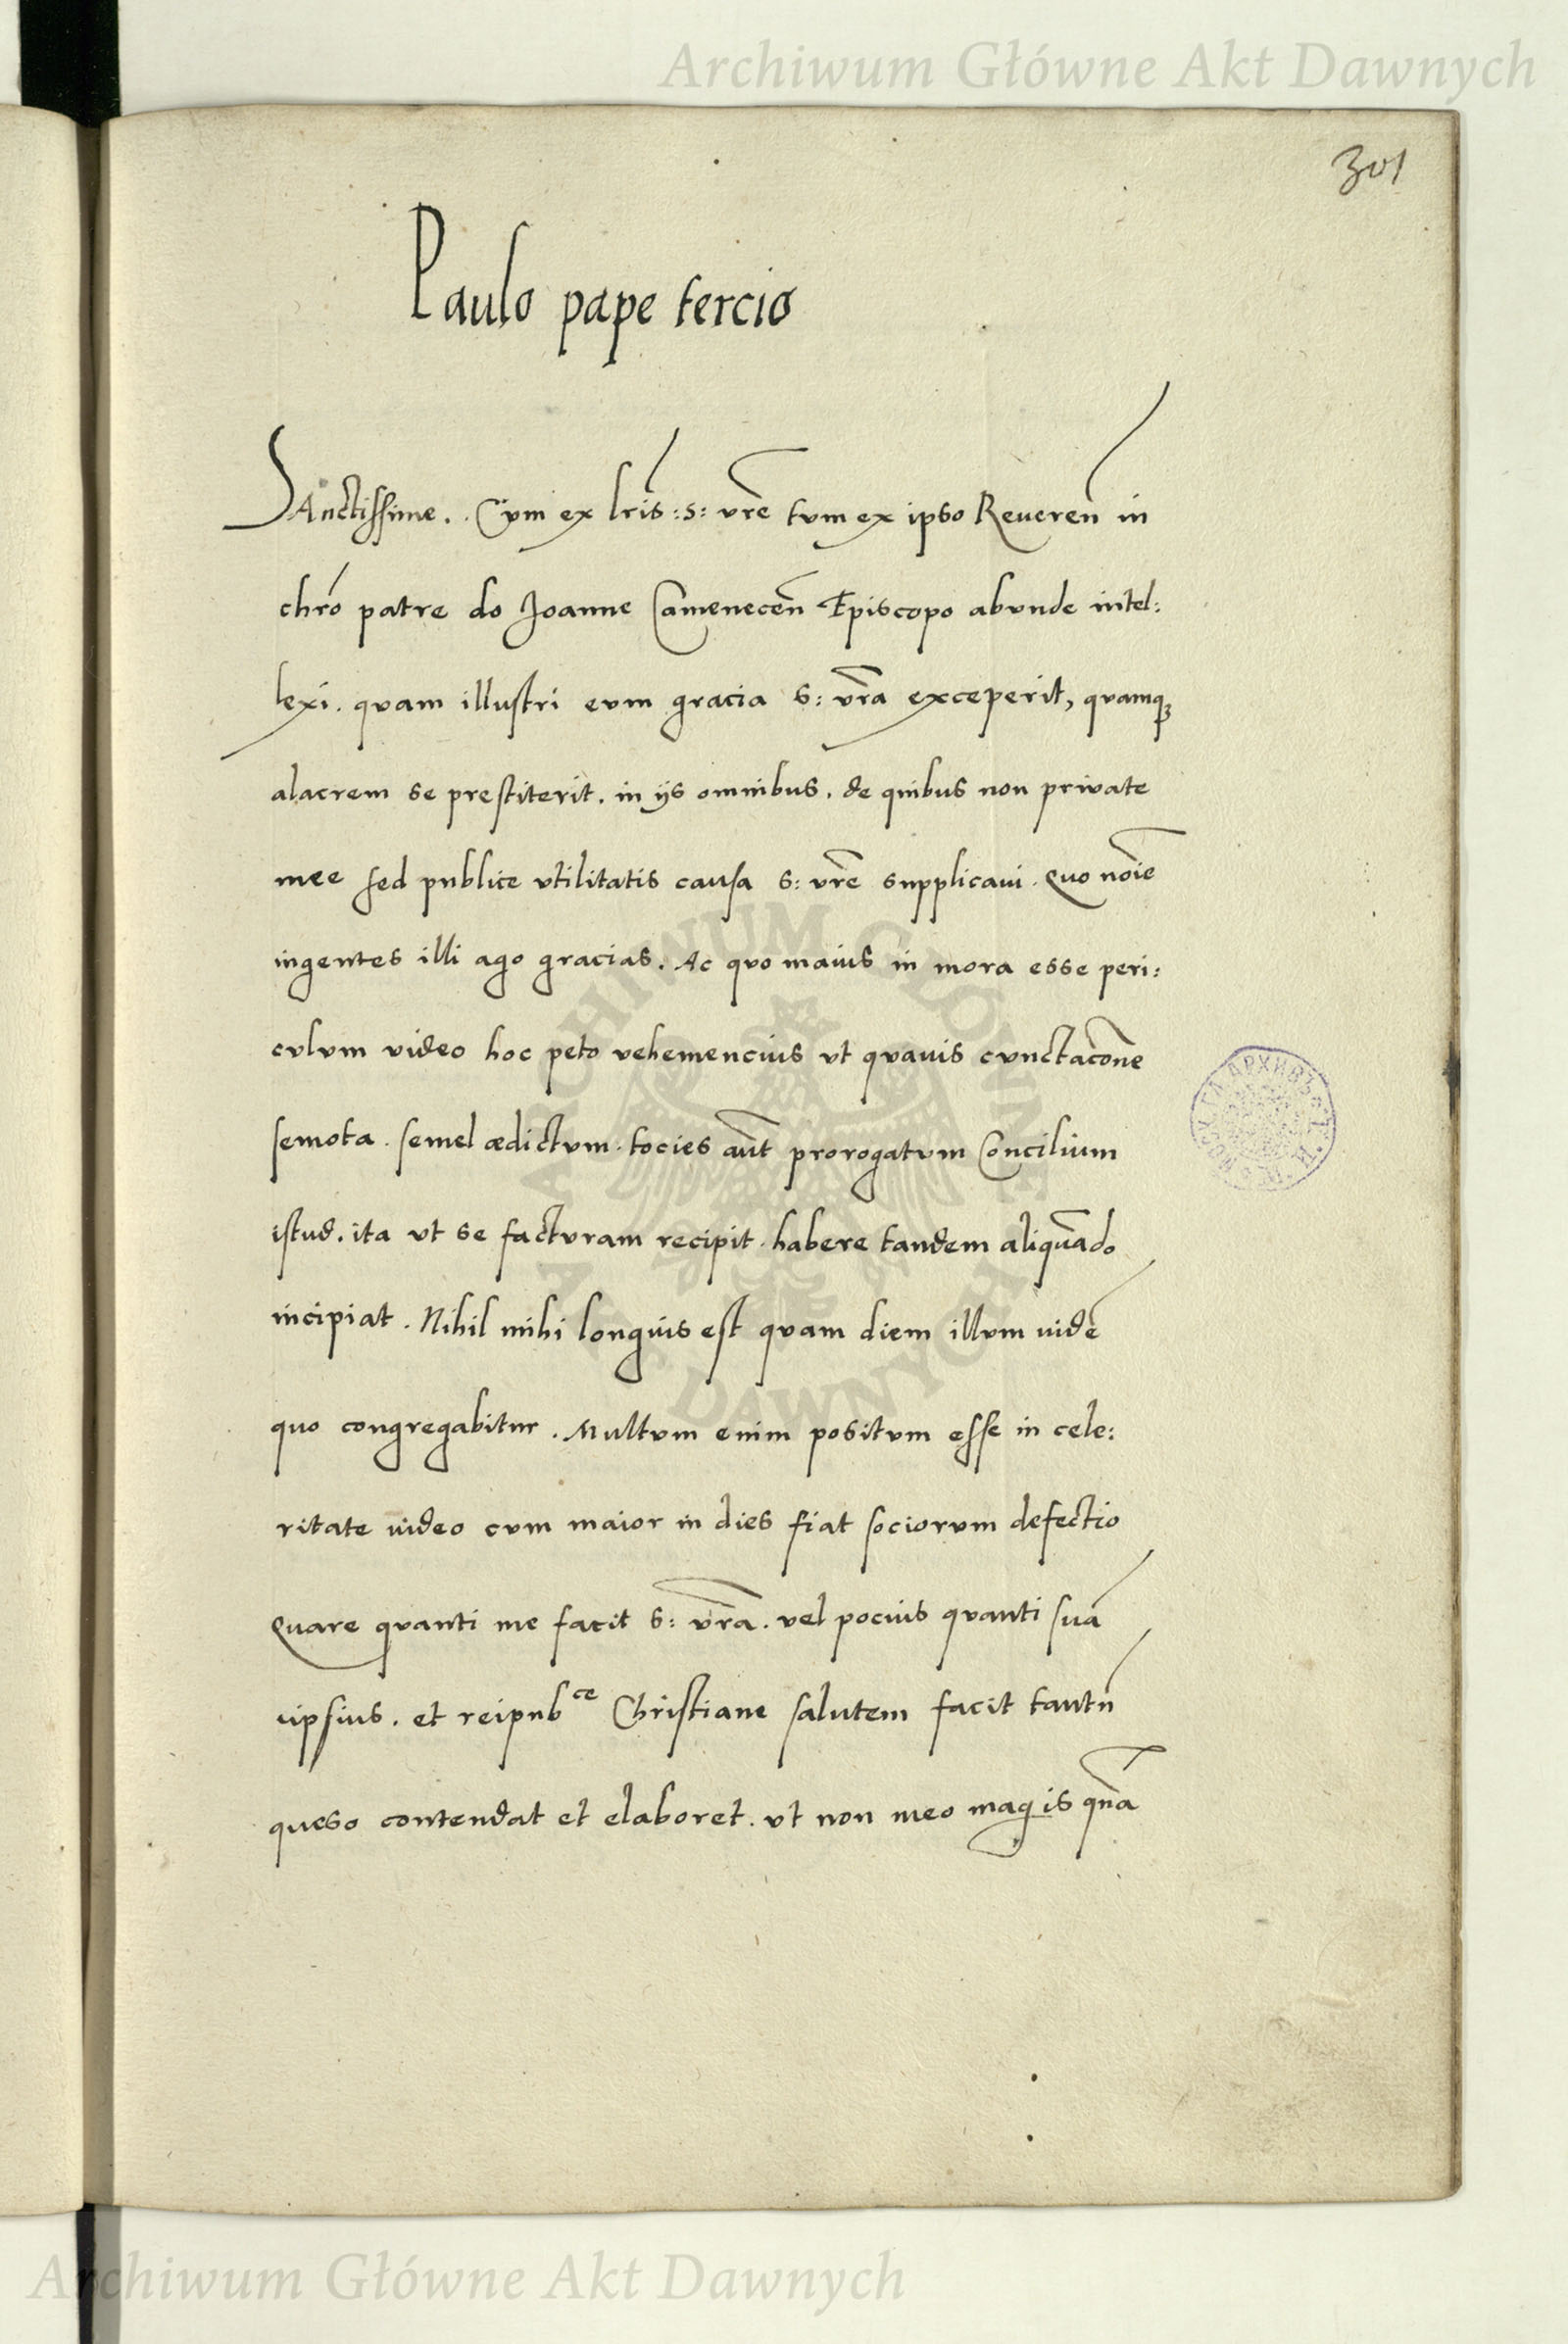 Archiwum Główne Akt Dawnych
301
Paulo pape tercio
SAnctissime. Cum ex lris :s: vre tvm ex ipso Reueren in
chro patre do Joanne Camenecen Episcopo abvnde intel:
lexi. qvam illustri evm gracia s: vra exceperit, qvamq3
alacrem se prestiterit. in ijs omnibus. de quibus non priuate
mee sed publice vtilitatis cavsa s: vre supplicaui. Qvo noie
ingentes illi ago gracias. Ac qvo maius in mora esse peri:
cvlvm video hoc peto vehemencius vt qvauis cvnctacone
semota. semel ædictvm. tocies aut prorogatvm Concilium
istud. ita vt se factvram recipit. habere tandem aliquado
incipiat. Nihil mihi longius est qvam diem illvm uide
quo congregabitur. Multvm enim positvm esse in cele:
ritate uideo cvm maior in dies fiat sociorvm defectio
Qvare qvanti me facit s: vra. vel pocius qvanti sua
ipsius. et reipub^ce Christiane salutem facit tantu
queso contendat et elaboret. vt non meo magis qna
ARCHIWUM GŁÓWNE
AKT DAWNYCH
Archiwum Główne Akt Dawnych